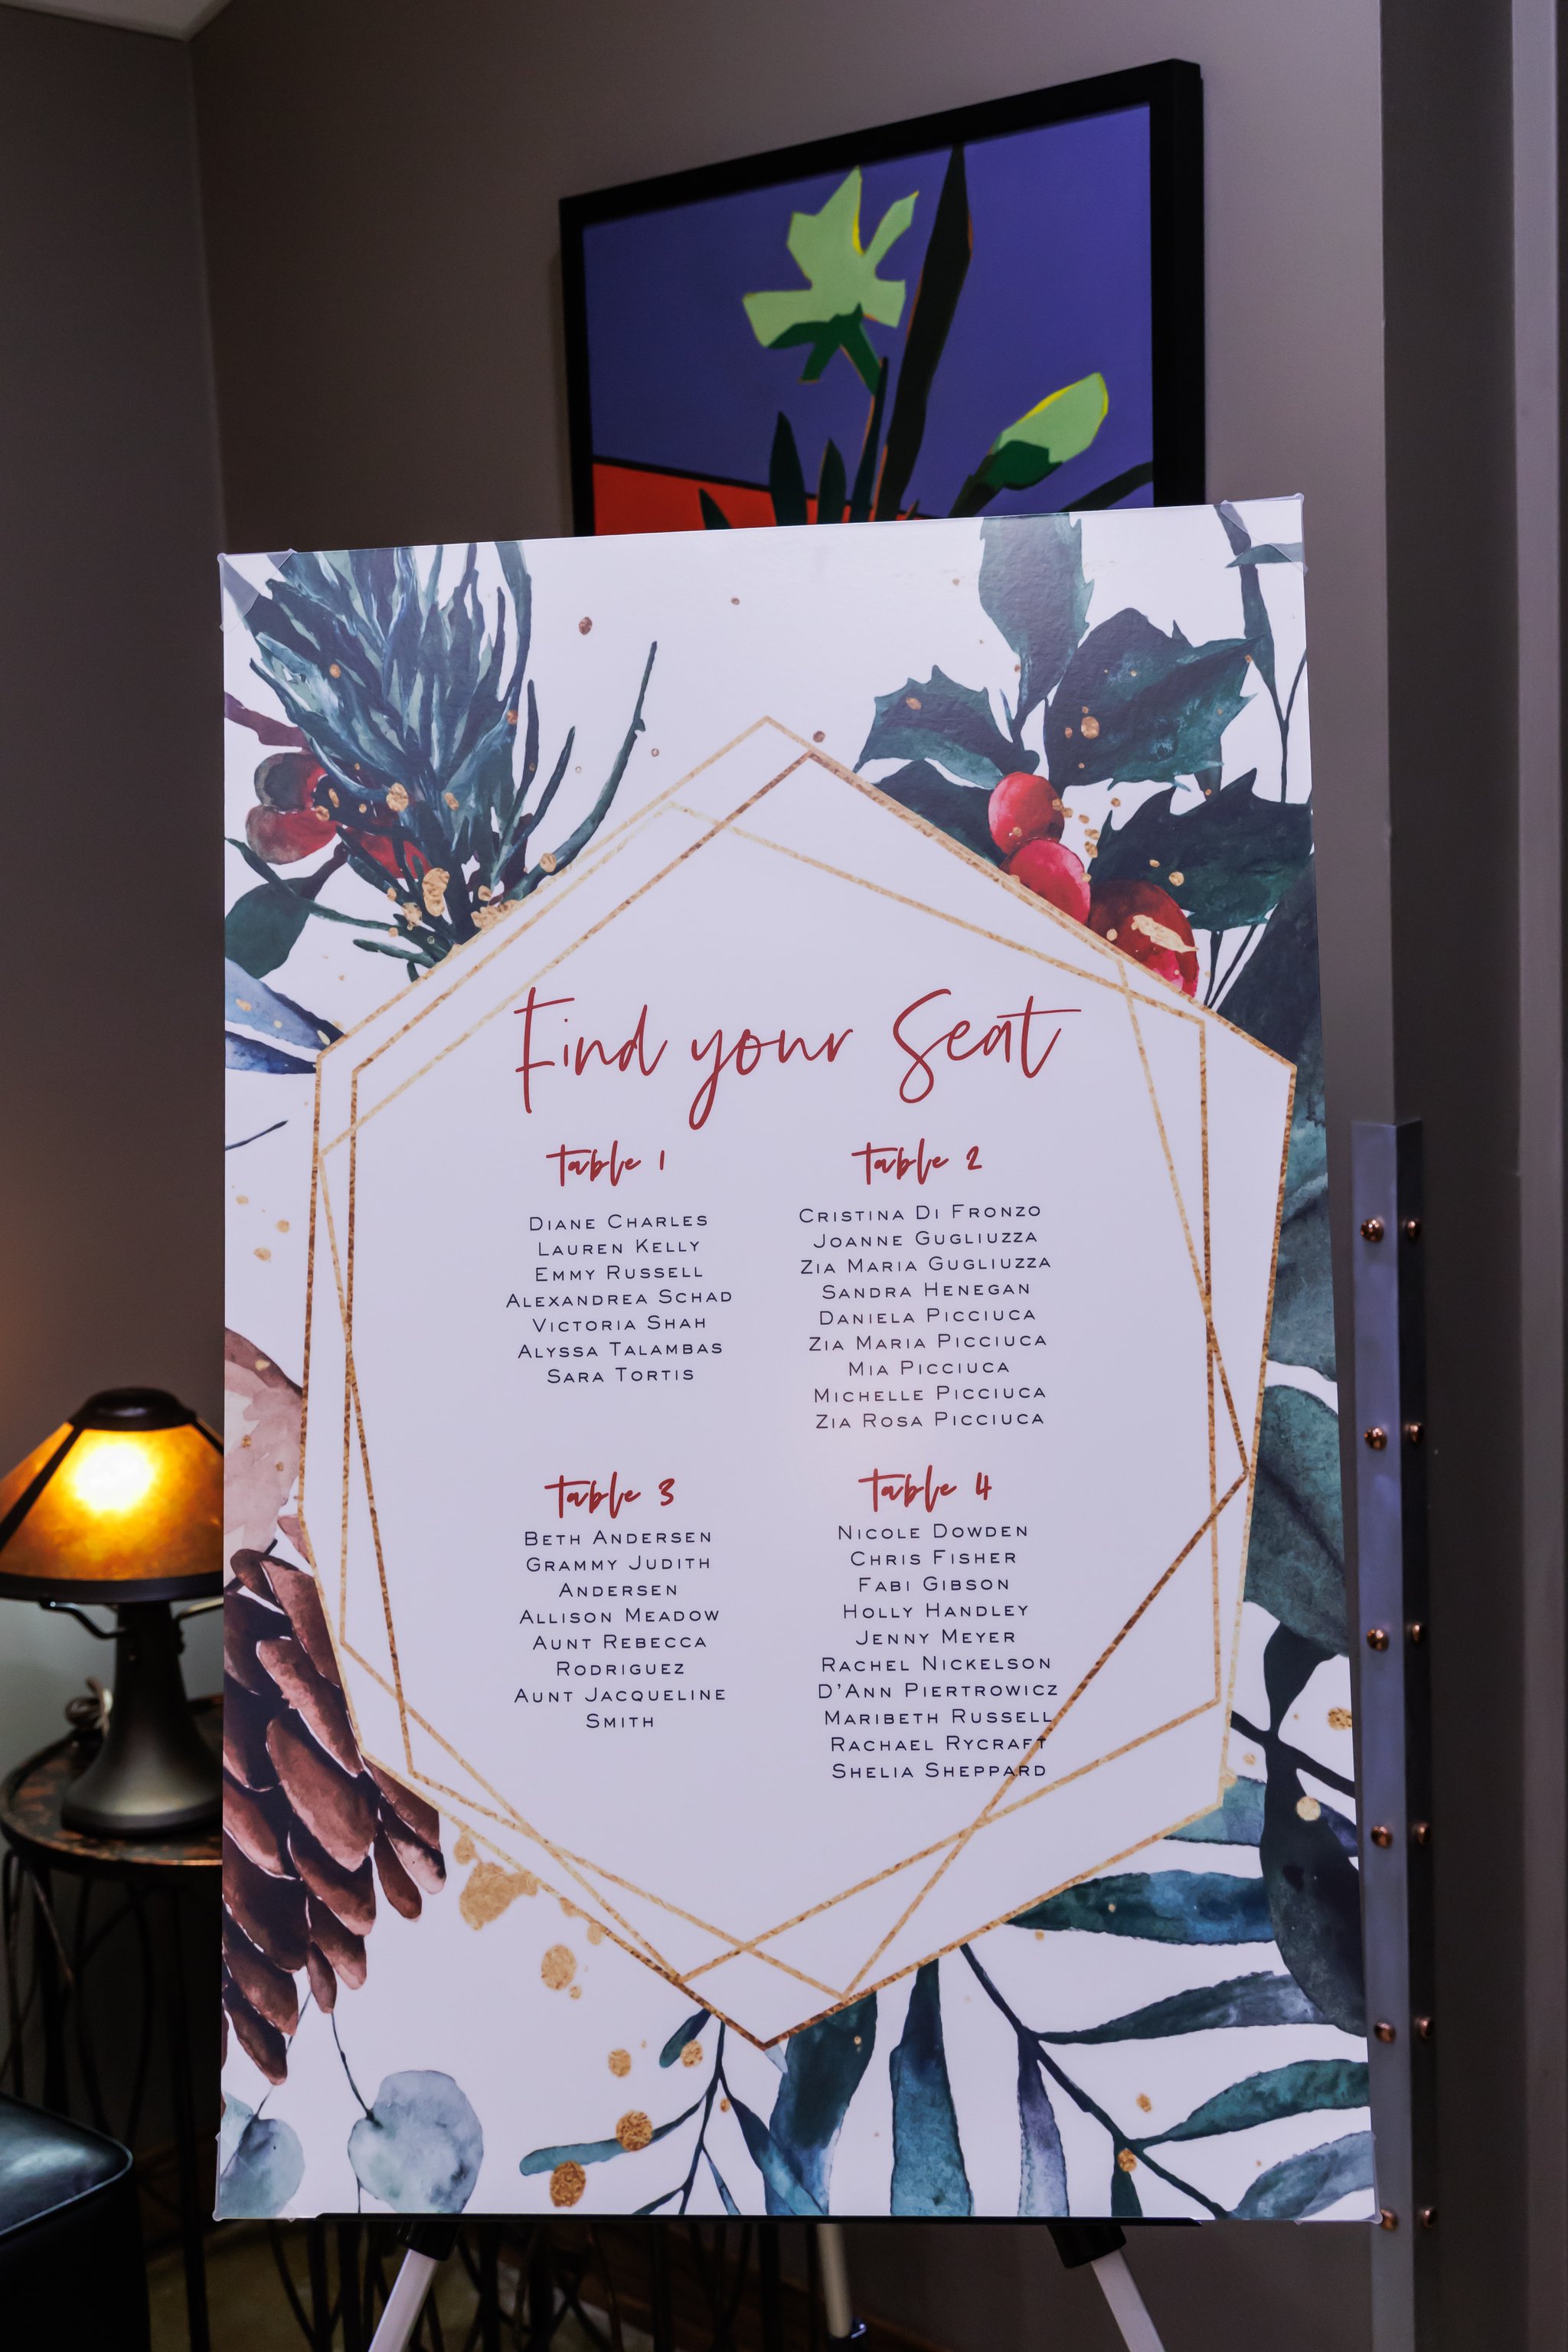 Find your Seat
Table 1
Diane Charles
Lauren Kelly
Emmy Russell
Alexandrea Schad
Victoria Shah
Alyssa Talambas
Sara Tortis
Table 2
Cristina Di Fronzo
Joanne Gugliuzza
Zia Maria Gugliuzza
Sandra Henegan
Daniela Picciuca
Zia Maria Picciuca
Mia Picciuca
Michelle Picciuca
Zia Rosa Picciuca
Table 3
Beth Andersen
Grammy Judith
Andersen
Allison Meadow
Aunt Rebecca
Rodriguez
Aunt Jacqueline
Smith
Table 4
Nicole Dowden
Chris Fisher
Fabi Gibson
Holly Handley
Jenny Meyer
Rachel Nickelson
D'Ann Piertrowicz
Maribeth Russell
Rachael Rycraft
Shelia Sheppard